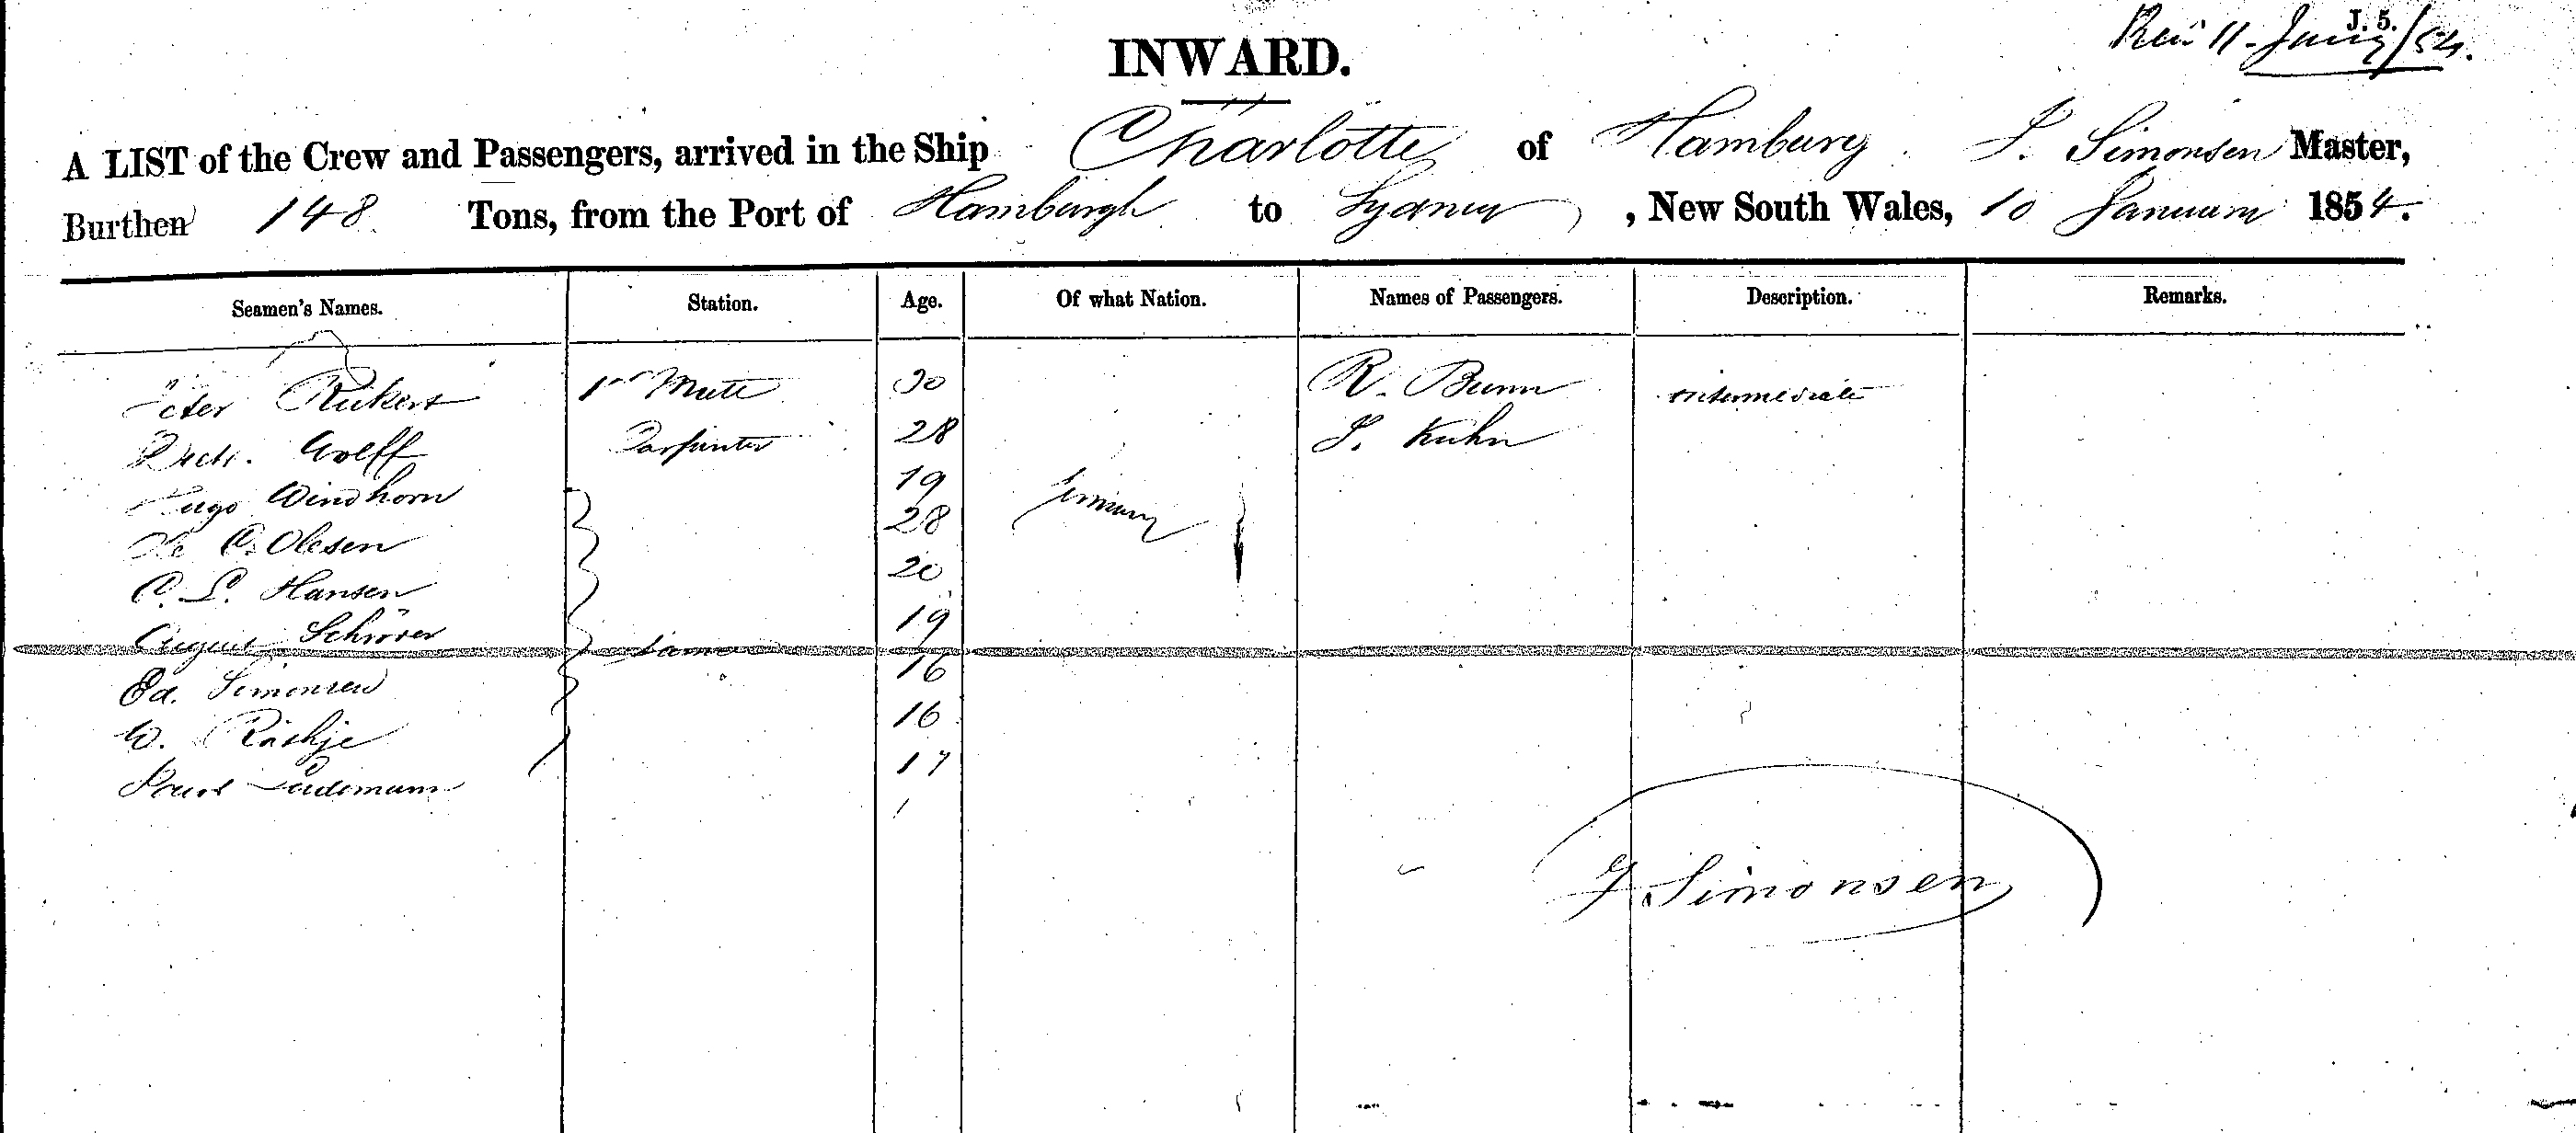 J. 5.
11. Jany/54.
INWARD.
A LIST of the Crew and Passengers, arrived in the Ship Charlotte of Hamburg J. Simonsen Master,
Burthen 148 Tons, from the Port of Hamburgh to Sydney, New South Wales, 10 January 1854.
Seamen's Names. Station. Age. Of what Nation. Names of Passengers. Description. Remarks.
Peter Rickers 1st Mate 30 R. Bunn intermediate
Wolff Carpenter 28 J. Kuhn
Hugo Windhorn 19 Germany
Ole C. Olesen 28
C. L. Hansen 20
August Schröder 19
Ed. Simonsen same 16
W. Räthje 16
Lüdemann 17
J. Simonsen